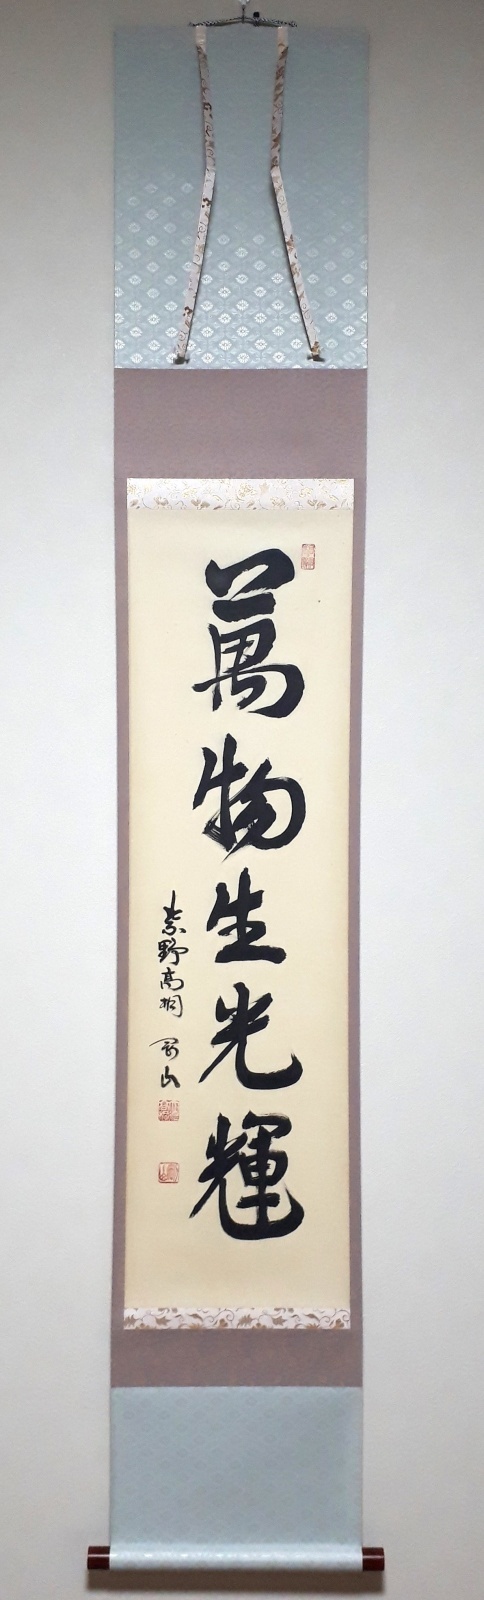 萬物生光輝
紫野高桐 剛山